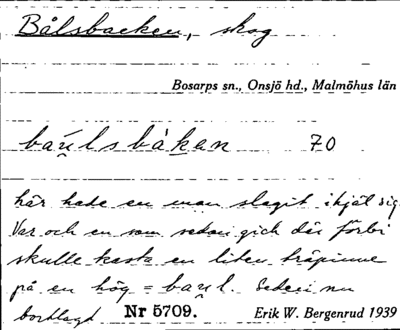 Bålsbacken, skog
Bosarps sn., Onsjö hd., Malmöhus län
baʉlsbákan 70
här hade en man slagit ihjäl sig.
Var och en som sedan gick där förbi
skulle kasta en liten träpinne
på en hög = baʉl. Seden nu
bortlagd Nr 5709. Erik W. Bergenrud 1939